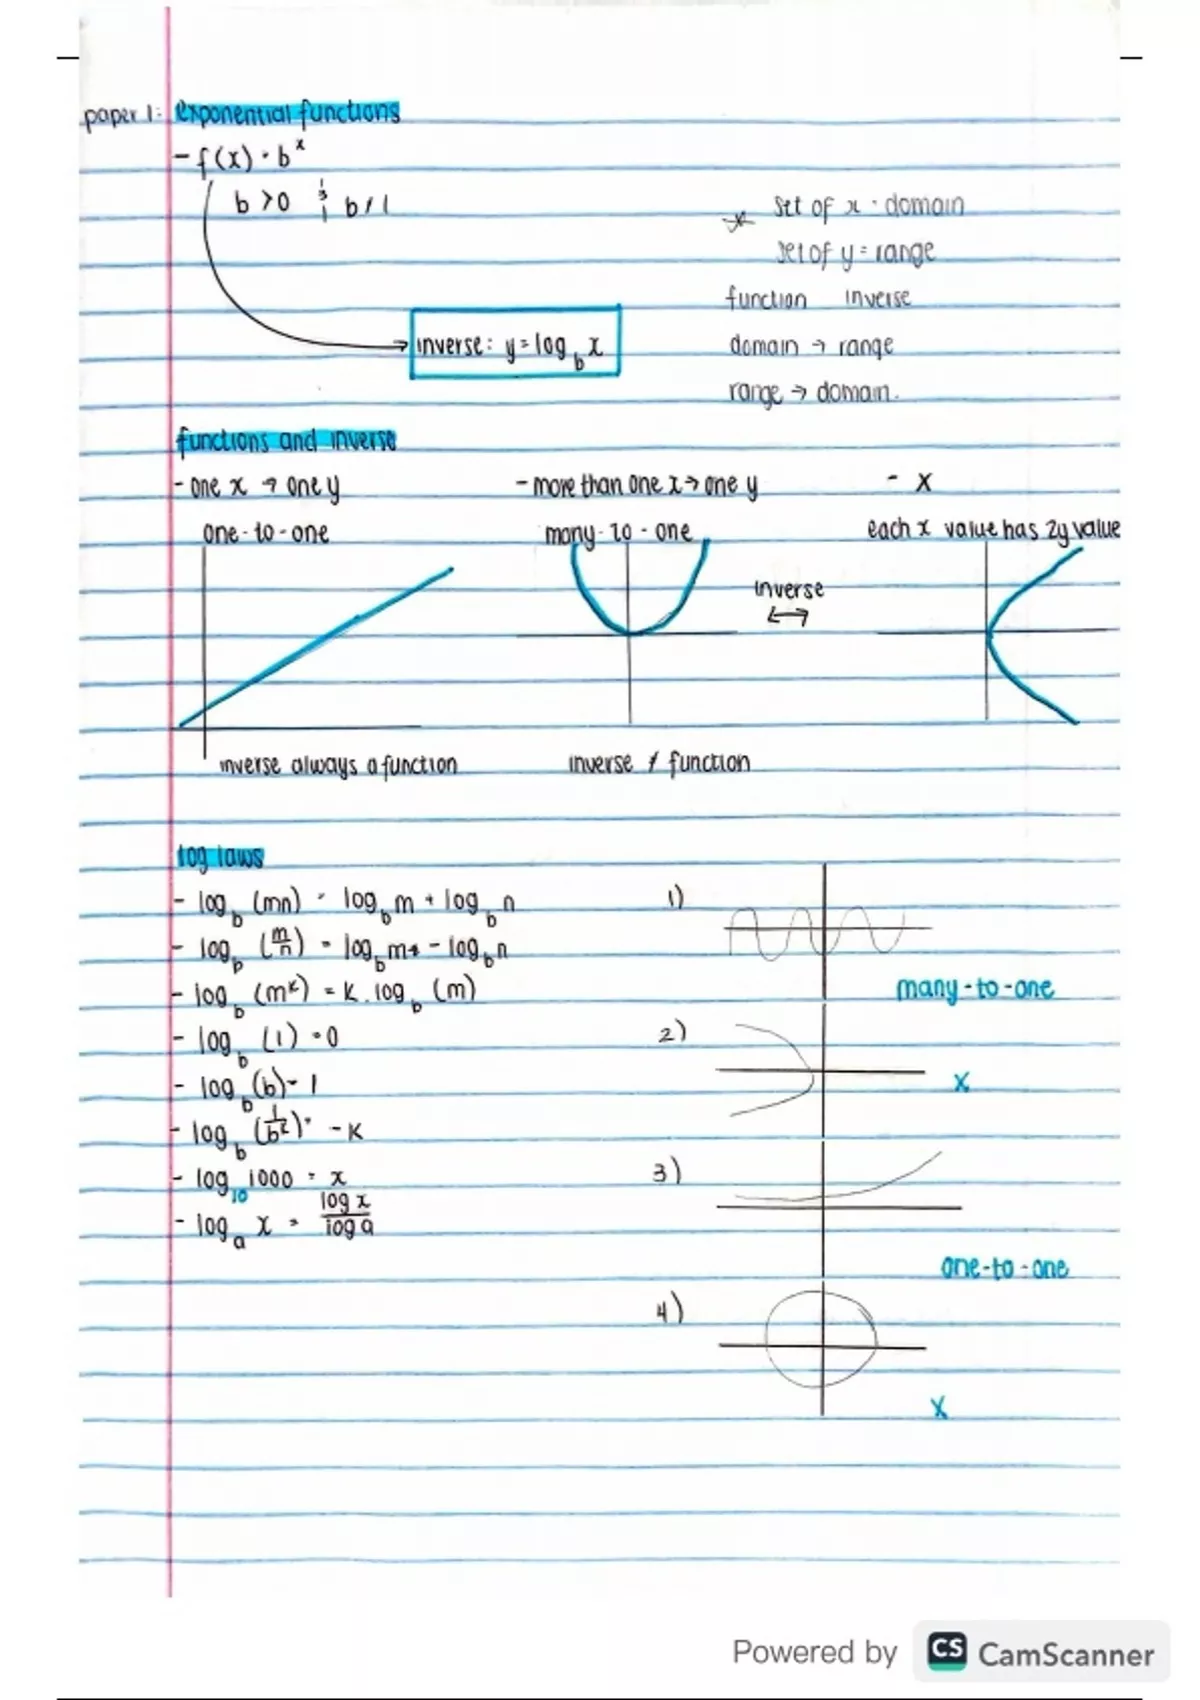 paper 1: exponential functions
- f(x) = b^x
b > 0 & b ≠ 1
* set of x = domain
set of y = range
function inverse
inverse: y = log_b x
domain → range
range → domain.
functions and inverse
- one x → one y
- more than one x → one y
- x
one-to-one
many-to-one
each x value has 2y value
inverse
↔
inverse always a function
inverse ≠ function
log laws
- log_b (mn) = log_b m + log_b n
1)
- log_b (m/n) = log_b m - log_b n
- log_b (m^k) = k . log_b (m)
many-to-one
- log_b (1) = 0
2)
- log_b (b) = 1
x
- log_b (1/b^k) = -k
- log_10 1000 = x
3)
- log_a x = log x / log a
one-to-one
4)
x
Powered by CS CamScanner